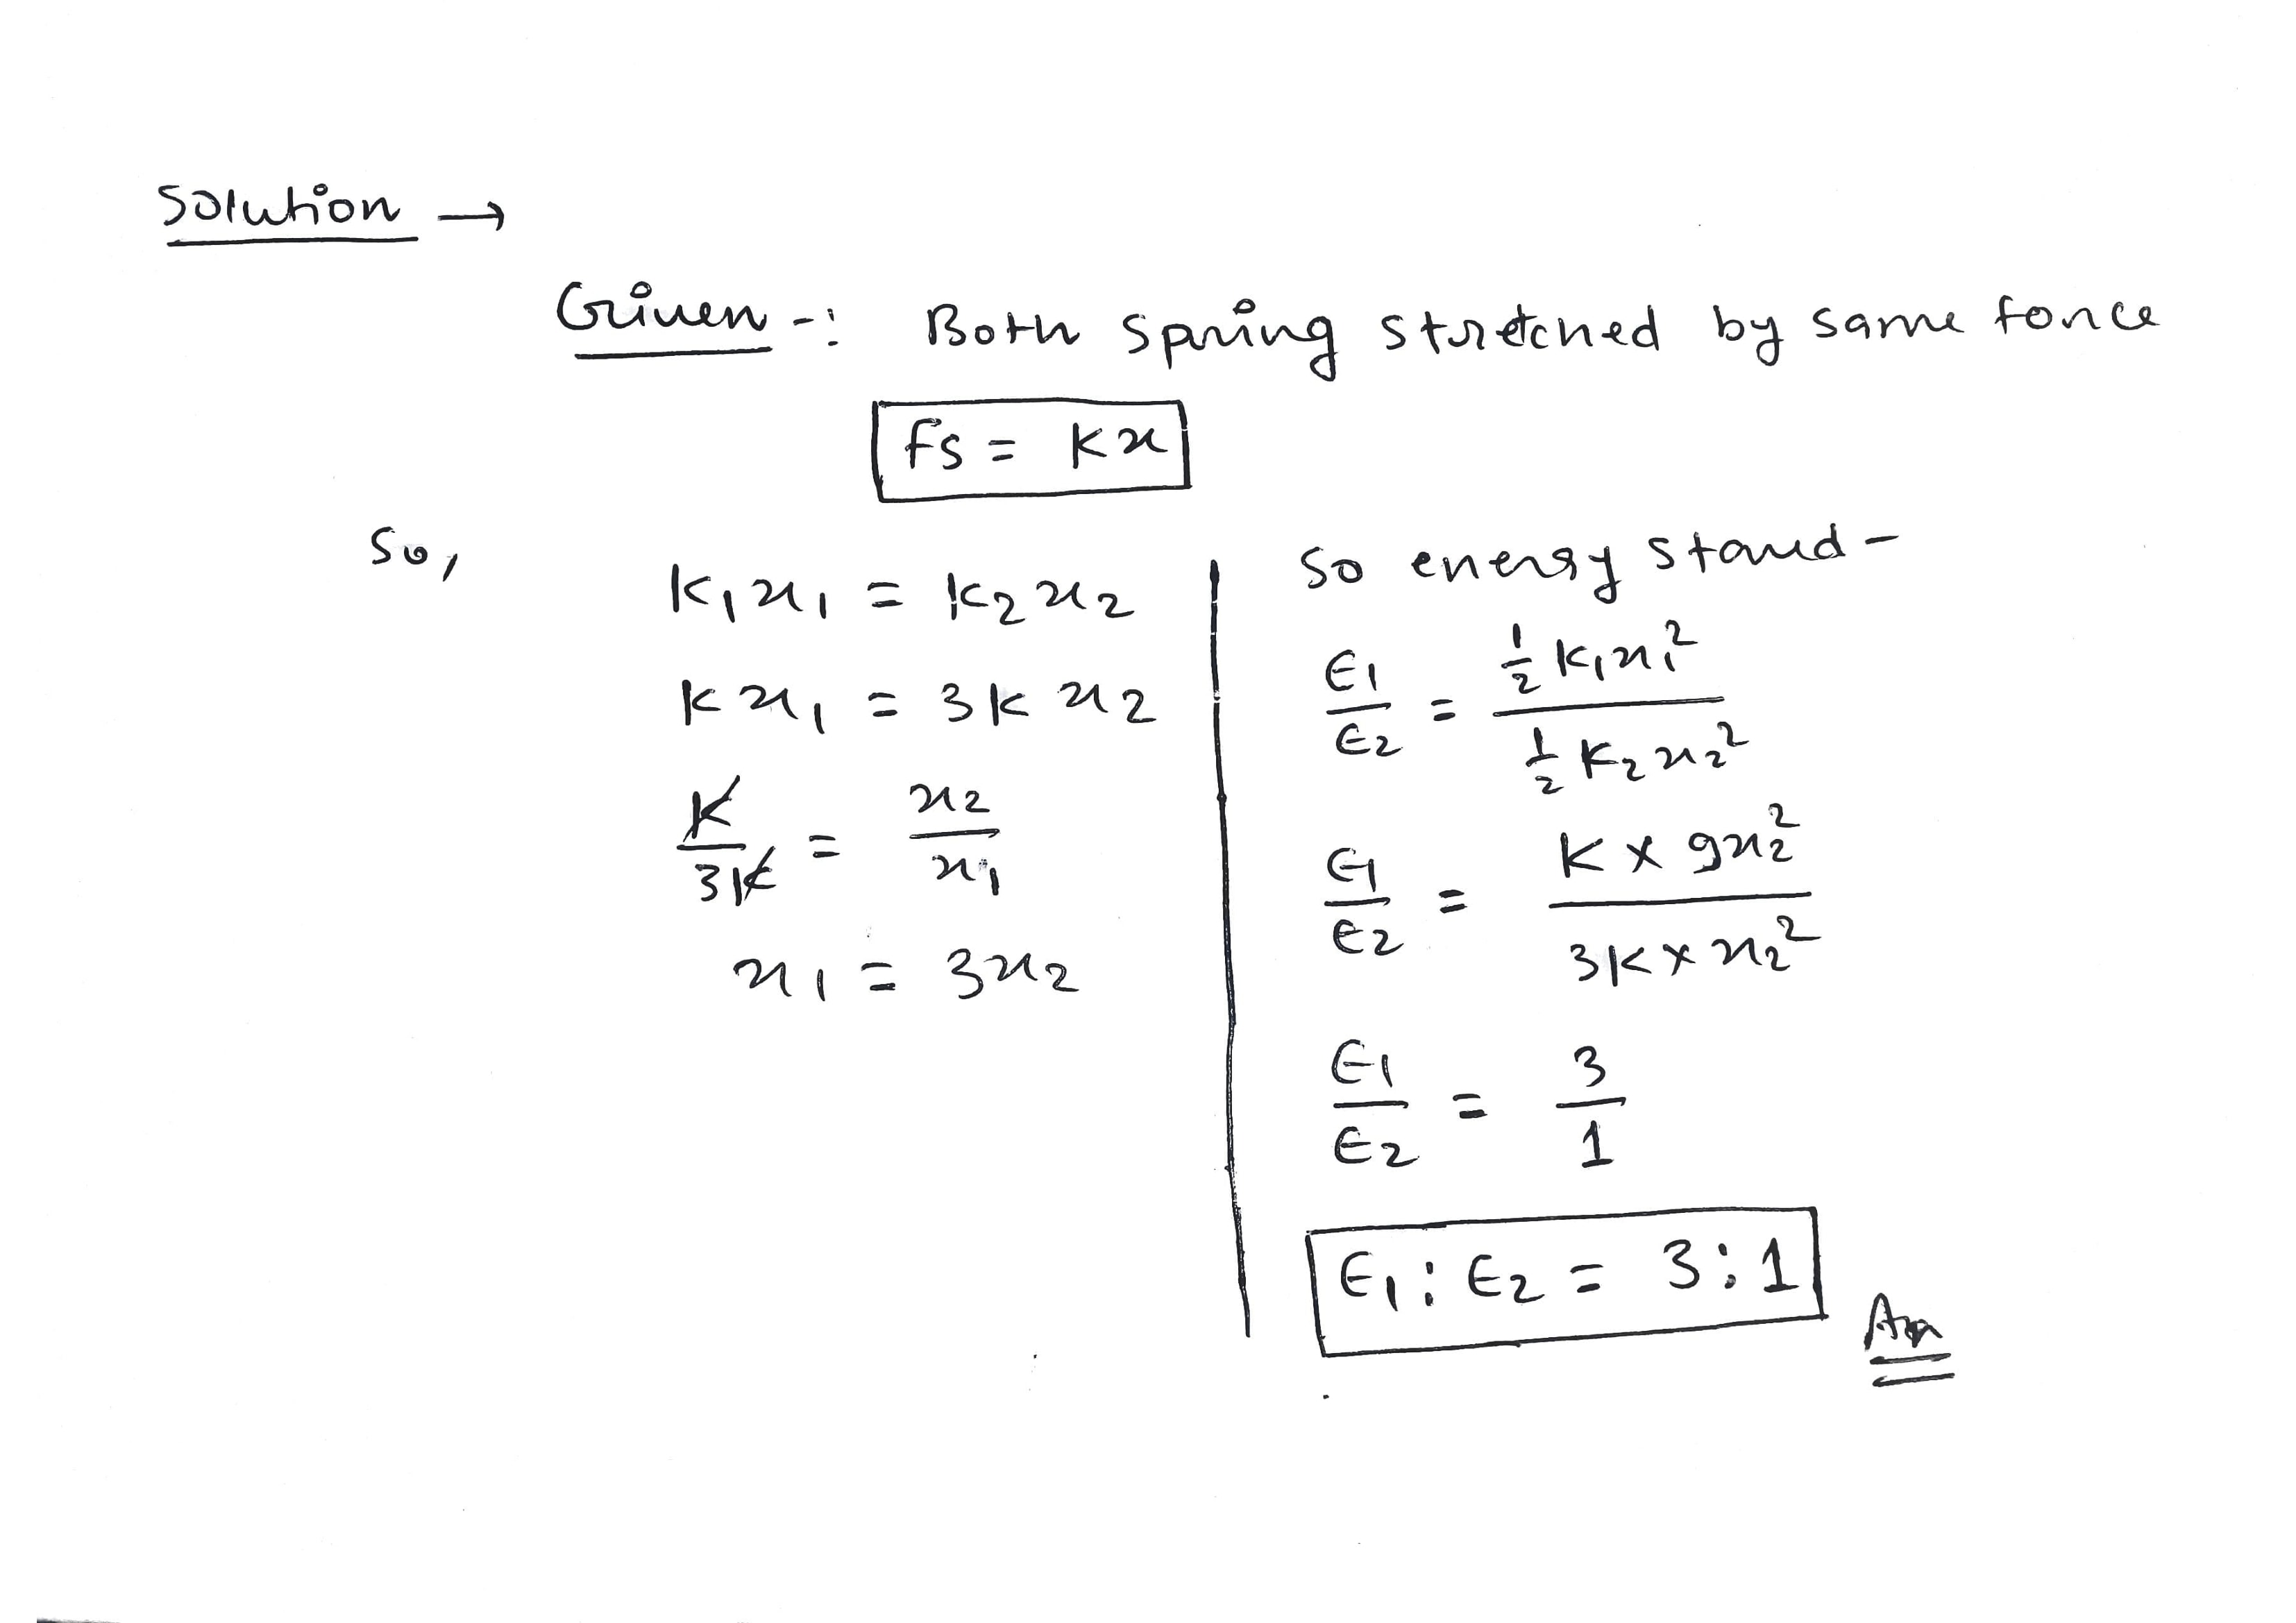 Solution →
Given -: Both spring stretched by same force
Fs = Kx
So,
K₁x₁ = K₂x₂
Kx₁ = 3Kx₂
K/3K = x₂/x₁
x₁ = 3x₂
So energy stored -
E₁/E₂ = ½K₁x₁² / ½K₂x₂²
E₁/E₂ = K × 9x₂² / 3K × x₂²
E₁/E₂ = 3/1
E₁ : E₂ = 3 : 1
Ans